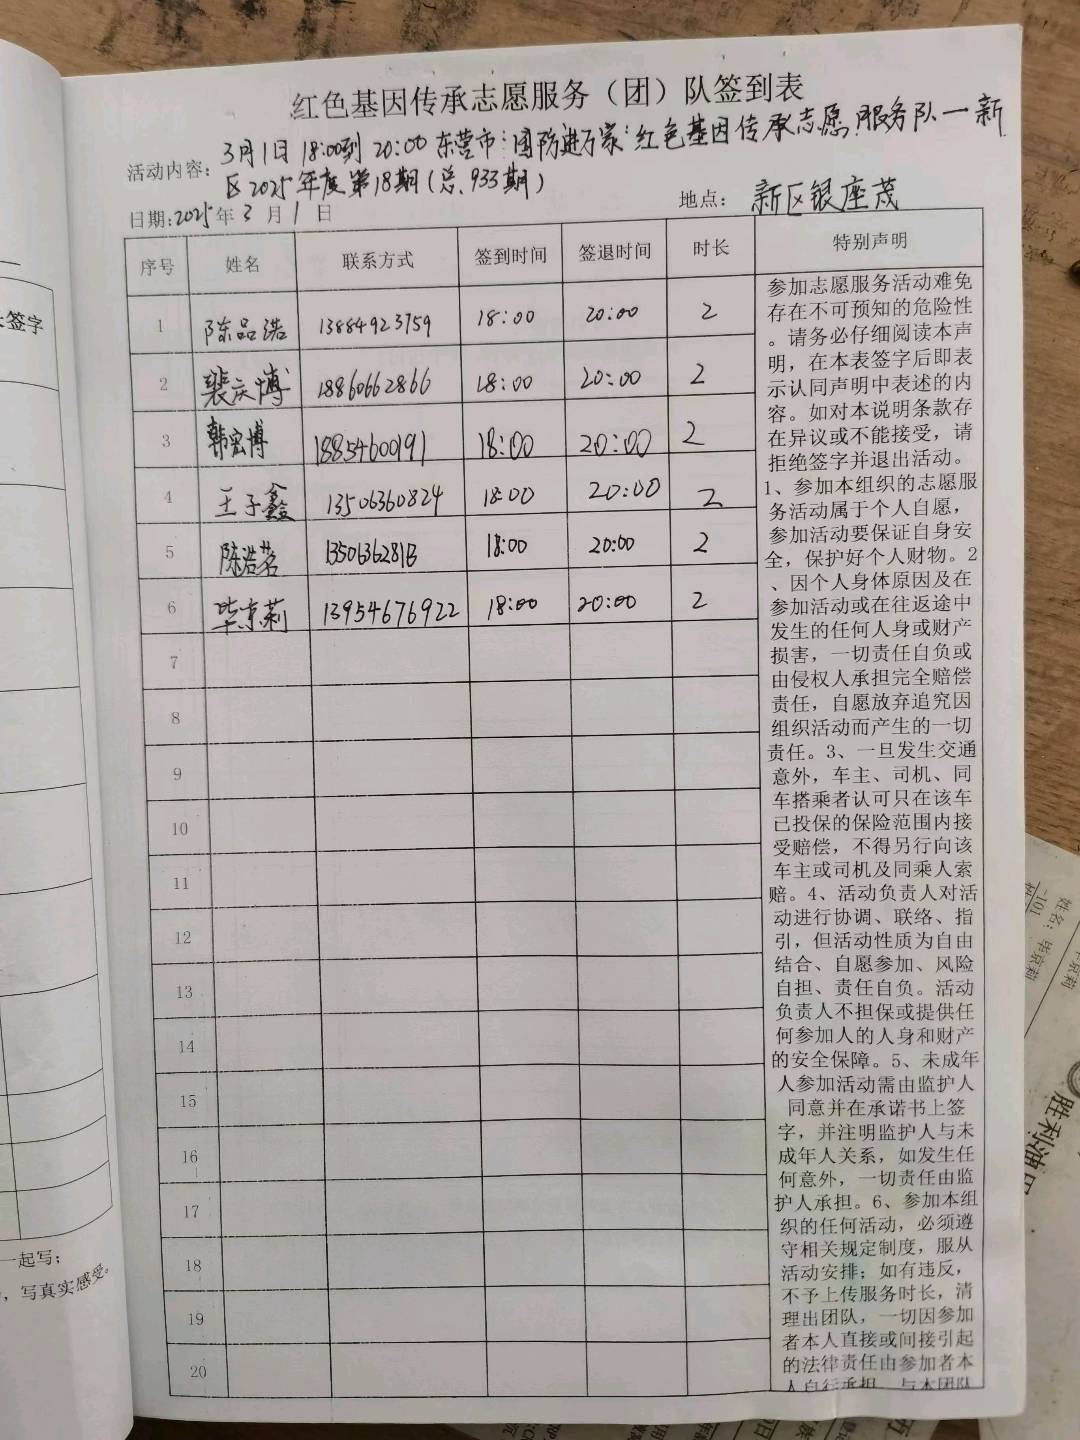 红色基因传承志愿服务（团）队签到表
活动内容：3月1日 18:00到 20:00 东营市"国防进万家"红色基因传承志愿服务队一新
区2025年度第18期(总.933期)
日期:2025年3月1日
地点：新区银座茂
序号 姓名 联系方式 签到时间 签退时间 时长 特别声明
1 陈品浩 13884923759 18:00 20:00 2
2 裴庆博 18860662866 18:00 20:00 2
3 韩宏博 18854600191 18:00 20:00 2
4 王子鑫 13506360824 18:00 20:00 2
5 陈浩茗 18:00 20:00 2
6 毕京莉 13954676922 18:00 20:00 2
7
8
9
10
11
12
13
14
15
16
17
18
19
20
参加志愿服务活动难免
存在不可预知的危险性
。请务必仔细阅读本声
明，在本表签字后即表
示认同声明中表述的内
容。如对本说明条款存
在异议或不能接受，请
拒绝签字并退出活动。
1、参加本组织的志愿服
务活动属于个人自愿，
参加活动要保证自身安
全，保护好个人财物。2
、因个人身体原因及在
参加活动或在往返途中
发生的任何人身或财产
损害，一切责任自负或
由侵权人承担完全赔偿
责任，自愿放弃追究因
组织活动而产生的一切
责任。3、一旦发生交通
意外，车主、司机、同
车搭乘者认可只在该车
已投保的保险范围内接
受赔偿，不得另行向该
车主或司机及同乘人索
赔。4、活动负责人对活
动进行协调、联络、指
引，但活动性质为自由
结合、自愿参加、风险
自担、责任自负。活动
负责人不担保或提供任
何参加人的人身和财产
的安全保障。5、未成年
人参加活动需由监护人
同意并在承诺书上签
字，并注明监护人与未
成年人关系，如发生任
何意外，一切责任由监
护人承担。6、参加本组
织的任何活动，必须遵
守相关规定制度，服从
活动安排；如有违反，
不予上传服务时长，清
理出团队，一切因参加
者本人直接或间接引起
的法律责任由参加者本
人自行承担，与本团队
签字
一起写；
，写真实感受。
姓名：毕京莉
-101
胜利油田